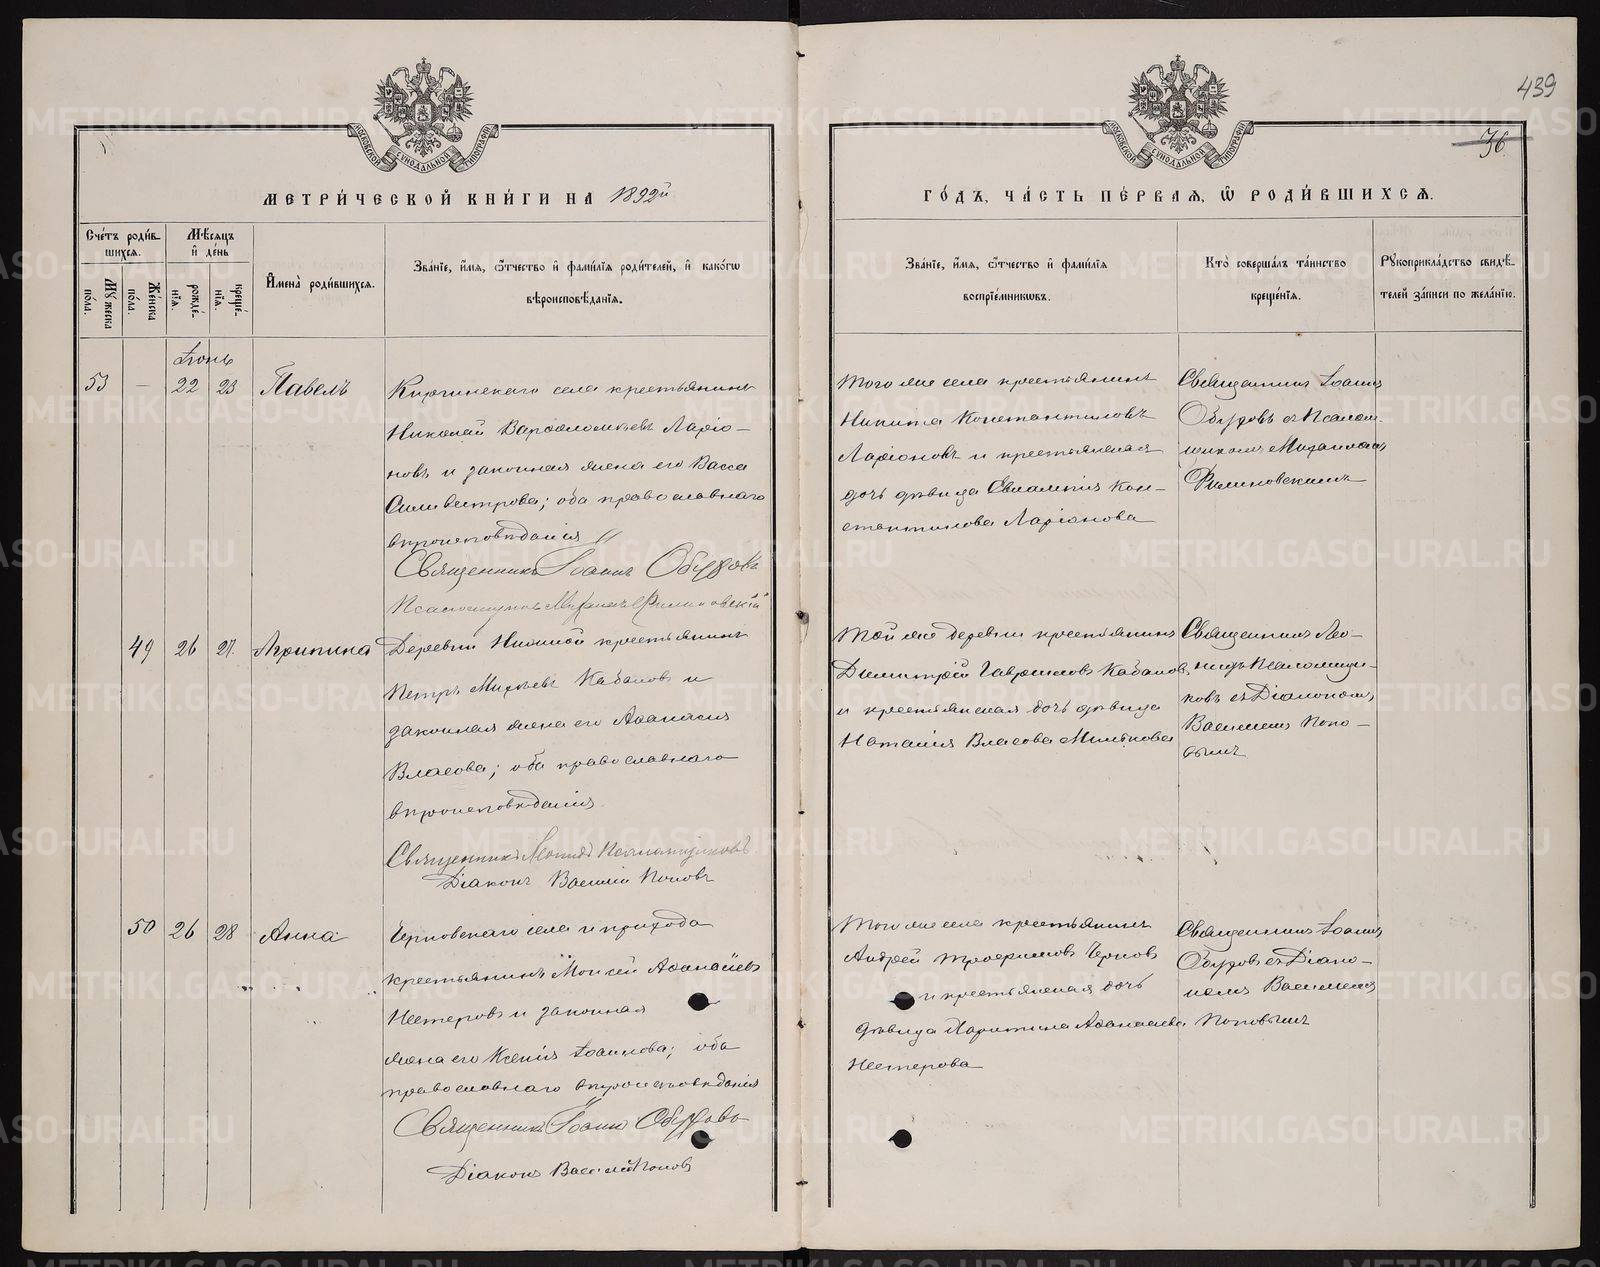 439
36
МЕТРИ́ЧЕСКОЙ КНИ́ГИ НА 1892й
ГО́ДЪ, ЧА́СТЬ ПЕ́РВАЯ, Ѿ РОДИ́ВШИХСЯ.
МОСКОВСКОЙ СѴНОДАЛЬНОЙ ТИПОГРАФІИ
МОСКОВСКОЙ СѴНОДАЛЬНОЙ ТИПОГРАФІИ
Сче́тъ роди́в-
шихся.
Му́жеска по́ла.
Же́нска по́ла.
Мѣ́сяцъ
и҆ де́нь
рожде́-
нїя.
креще́-
нїя.
И҆мена̀ роди́вшихся.
Зва́нїе, и҆́мя, ѻ҆́тчество и҆ фами́лїя роди́телей, и҆ како́гѡ
вѣроисповѣ́данїя.
Зва́нїе, и҆́мя, ѻ҆́тчество и҆ фами́лїя
воспрїе́мникѡвъ.
Кто̀ соверша́лъ та́инство
креще́нїя.
Рꙋкоприкла́дство свидѣ́-
телей за́писи по жела́нїю.
Іюнь
53 — 22 23 Павелъ
Киргинскаго села крестьянинъ
Николай Варѳоломѣевъ Ларіо-
новъ и законная жена его Васса
Силивестрова; оба православнаго
вѣроисповѣданія
Священникъ Іоаннъ Обуховъ
Псаломщикъ Михаилъ
Того же села крестьянинъ
Никита Константиновъ
Ларіоновъ и крестьянская
дочь дѣвица Евлампія Кон-
стантинова Ларіонова
Священникъ Іоаннъ
съ Псалом-
щикомъ Михаиломъ
49 26 27. Агрипина
Деревни Нижней крестьянинъ
Петръ Кабаковъ и
законная жена его Аѳанасія
Власова; оба православнаго
вѣроисповѣданія.
Священникъ Леонидъ Псаломщиковъ
Діаконъ Василій Поповъ
Той же деревни крестьянинъ
Димитрій Гавриловъ Кабаковъ
и крестьянская дочь дѣвица
Наталія Власова
Священникъ Лео-
нидъ Псаломщи-
ковъ съ Діакономъ
Василіемъ Попо-
вымъ
50 26 28 Анна
Черновскаго села и прихода
крестьянинъ Моисей Аѳанасіевъ
Нестеровъ и законная
жена его Ксенія Іоаннова; оба
православнаго вѣроисповѣданія
Священникъ Іоаннъ
Діаконъ Василій Поповъ
Того же села крестьянинъ
Андрей Трофимовъ Черновъ
и крестьянская дочь
дѣвица Харитина Аѳанасіева
Нестерова
Священникъ Іоаннъ
съ Діако-
номъ Василіемъ
Поповымъ
METRIKI.GASO-URAL.RU